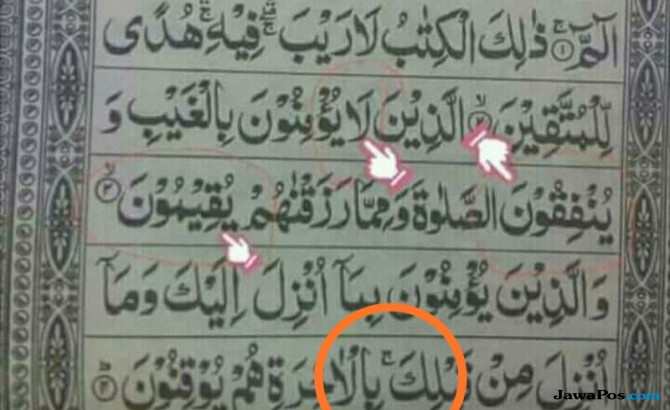 الٓمّٓ ۚ ۱ ذٰلِكَ الْكِتٰبُ لَا رَيْبَ ۛۚ فِيْهِ ۛۚ هُدًى
لِّلْمُتَّقِيْنَ ۙ ۲ الَّذِيْنَ لَا يُؤْمِنُوْنَ بِالْغَيْبِ وَ
يُنْفِقُوْنَ الصَّلٰوةَ وَمِمَّا رَزَقْنٰهُمْ يُقِيْمُوْنَ ۙ ۳
وَالَّذِيْنَ يُؤْمِنُوْنَ بِمَآ اُنْزِلَ اِلَيْكَ وَمَآ
اُنْزِلَ مِنْ قَبْلِكَ ۚ بِالْاٰخِرَةِ هُمْ يُوْقِنُوْنَ ؕ ۴
JawaPos.com